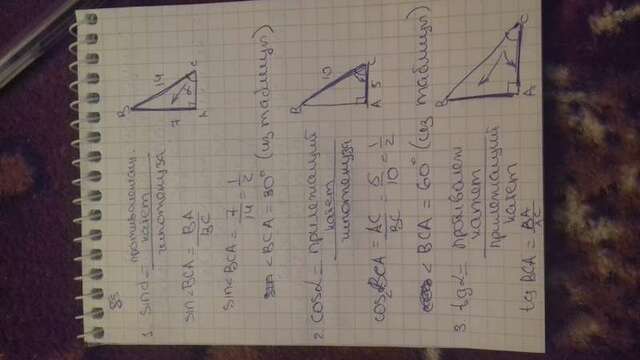 85
1. sinα = противолежащ. катет / гипотенуза
B
7
14
α
A
C
sin<BCA = BA / BC
sin<BCA = 7/14 = 1/2
<BCA = 30° (из таблицы)
2. cosα = прилежащий катет / гипотенуза
B
10
A 5 C
cos<BCA = AC/BC = 5/10 = 1/2
<BCA = 60° (из таблицы)
3. tgα = противолеж катет / прилежащий катет
B
A
C
tg BCA = BA/AC